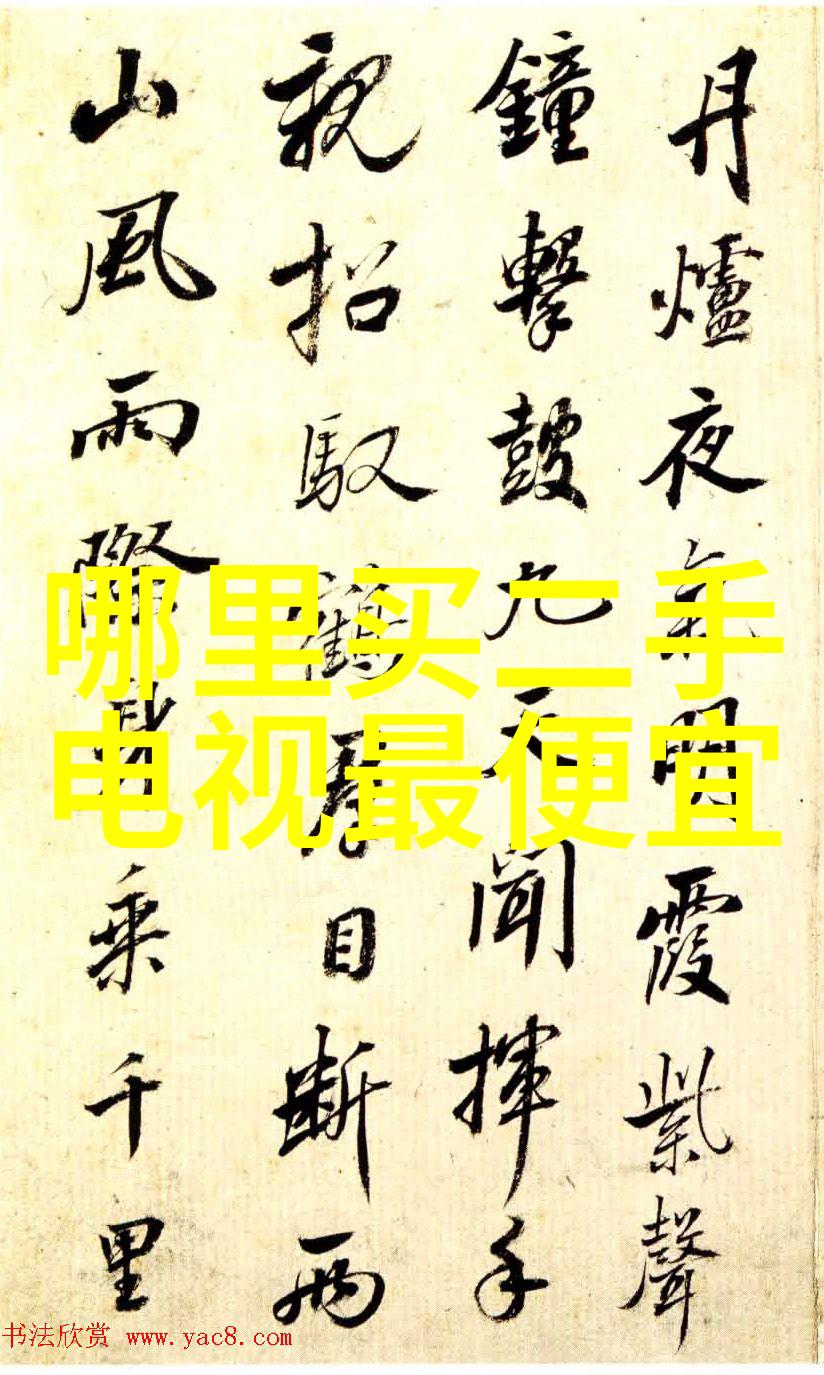 丹爐夜氣明霞紫聲
鐘擊鼓九天聞揮手
親招馭鶴君目断兩
山風雨際乘千里
哪里买二手
电视最便宜
书法欣赏 www.yac8.com